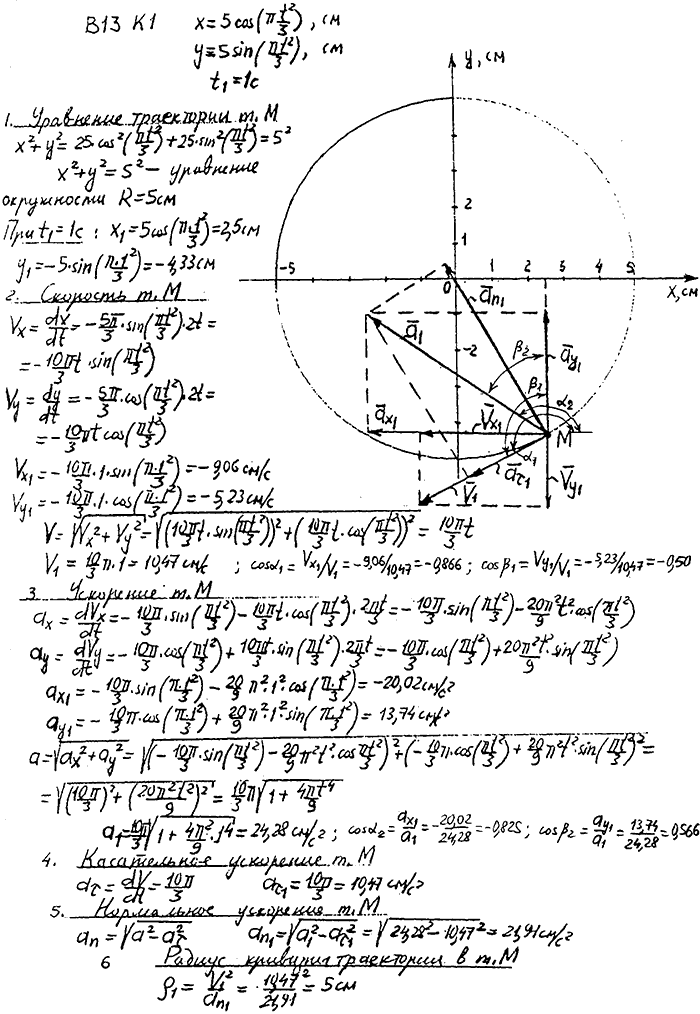 В13 К1 x = 5 cos(πt²/3), см
y = 5 sin(πt²/3), см
t₁ = 1с
1. Уравнение траектории т. М
x² + y² = 25·cos²(πt²/3) + 25·sin²(πt²/3) = 5²
x² + y² = 5² – уравнение
окружности R = 5см
При t₁ = 1с : x₁ = 5cos(π·1²/3) = 2,5см
y₁ = -5·sin(π·1²/3) = -4,33см
2. Скорость т. М
Vx = dx/dt = -5π/3·sin(πt²/3)·2t =
= -10πt/3·sin(πt²/3)
Vy = dy/dt = -5π/3·cos(πt²/3)·2t =
= -10πt/3 cos(πt²/3)
Vx₁ = -10π/3·1·sin(π·1²/3) = -9,06 см/с
Vy₁ = -10π/3·1·cos(π·1²/3) = -5,23 см/с
V = √(Vx² + Vy²) = √((10πt/3·sin(πt²/3))² + (10πt/3·cos(πt²/3))²) = 10πt/3
V₁ = 10/3 π·1 = 10,47 см/с ; cosα₁ = Vx₁/V₁ = -9,06/10,47 = -0,866 ; cosβ₁ = Vy₁/V₁ = -5,23/10,47 = -0,50
3. Ускорение т. М
ax = dVx/dt = -10π/3·sin(πt²/3) - 10πt/3·cos(πt²/3)·2πt/3 = -10π/3·sin(πt²/3) - 20π²t²/9·cos(πt²/3)
ay = dVy/dt = -10π/3·cos(πt²/3) + 10πt/3·sin(πt²/3)·2πt/3 = -10π/3·cos(πt²/3) + 20π²t²/9·sin(πt²/3)
ax₁ = -10π/3 sin(π·1²/3) - 20/9 π²·1²·cos(π·1²/3) = -20,02 см/с²
ay₁ = -10π/3 cos(π·1²/3) + 20/9 π²·1²·sin(π·1²/3) = 13,74 см/с²
a = √(ax² + ay²) = √((-10π/3·sin(πt²/3) - 20/9 π²t²·cos πt²/3)² + (-10/3 π·cos(πt²/3) + 20/9 π²t²·sin(πt²/3))²) =
= √((10π/3)² + (20π²t²/9)²) = 10/3 π √(1 + 4πt⁴/9)
a₁ = 10π/3 √(1 + 4π²/9·1⁴) = 24,28 см/с² ; cosα₂ = ax₁/a₁ = -20,02/24,28 = -0,825 ; cosβ₂ = ay₁/a₁ = 13,74/24,28 = 0,566
4. Касательное ускорение т. М
aτ = dV/dt = 10π/3 aτ₁ = 10π/3 = 10,47 см/с²
5. Нормальное ускорение т. М
an = √(a² - aτ²) an₁ = √(a₁² - aτ₁²) = √(24,28² - 10,47²) = 21,91 см/с²
6 Радиус кривизны траектории в т. М
ρ₁ = V₁²/an₁ = 10,47²/21,91 = 5 см
y, см
2
1
-5
0
1
2
3
4
5
x, см
-2
ān₁
ā₁
āy₁
β₂
β₁
α₂
āx₁
V̄x₁
M
α₁
āτ₁
V̄₁
V̄y₁